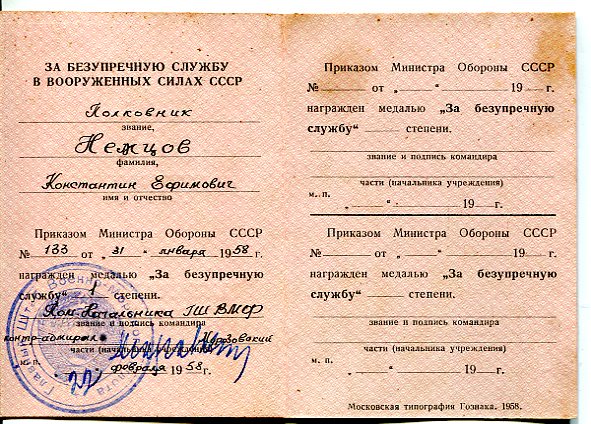 ЗА БЕЗУПРЕЧНУЮ СЛУЖБУ
В ВООРУЖЕННЫХ СИЛАХ СССР
Полковник
звание,
Немцов
фамилия,
Константин Ефимович
имя и отчество
Приказом Министра Обороны СССР
№ 133 от „31“ января 1958 г.
награжден медалью „За безупречную
службу“ I степени.
Пом. Начальника ГШ ВМФ
звание и подпись командира
контр-адмирал
части (начальника учреждения)
м. п. „22“ февраля 1958 г.
Главный Штаб Военно-Морского Флота
Приказом Министра Обороны СССР
№ от „ “ 19 г.
награжден медалью „За безупречную
службу“ степени.
звание и подпись командира
части (начальника учреждения)
м. п. „ “ 19 г.
Приказом Министра Обороны СССР
№ от „ “ 19 г.
награжден медалью „За безупречную
службу“ степени.
звание и подпись командира
части (начальника учреждения)
м. п. „ “ 19 г.
Московская типография Гознака. 1958.